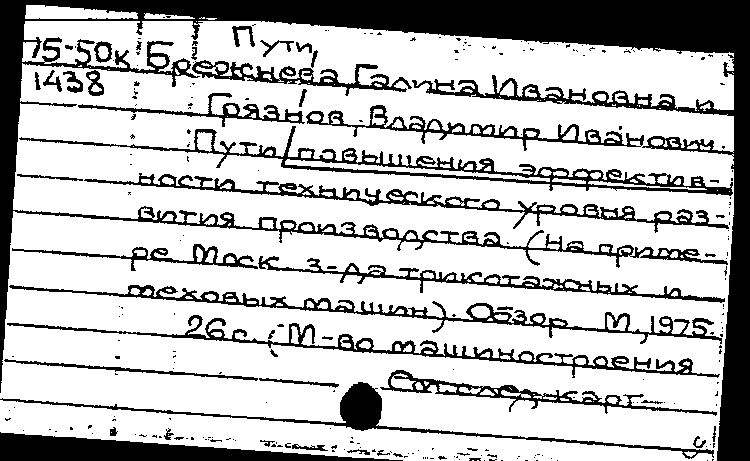 Пути
75-50к Брежнева, Галина Ивановна и
1438
Грязнов, Владимир Иванович.
Пути повышения эффектив-
ности технического уровня раз-
вития производства (На приме-
ре Моск. з-да трикотажных и
меховых машин). Обзор. М., 1975.
26 с. (М-во машиностроения
См. след. карт.